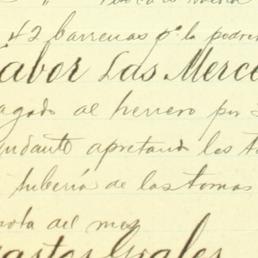 42 barrenas pª la pedrer
Labor Las Merce
agado al herrero por
yudante apretando los t
tuberia de las tomas
nota del mes
astos Grales